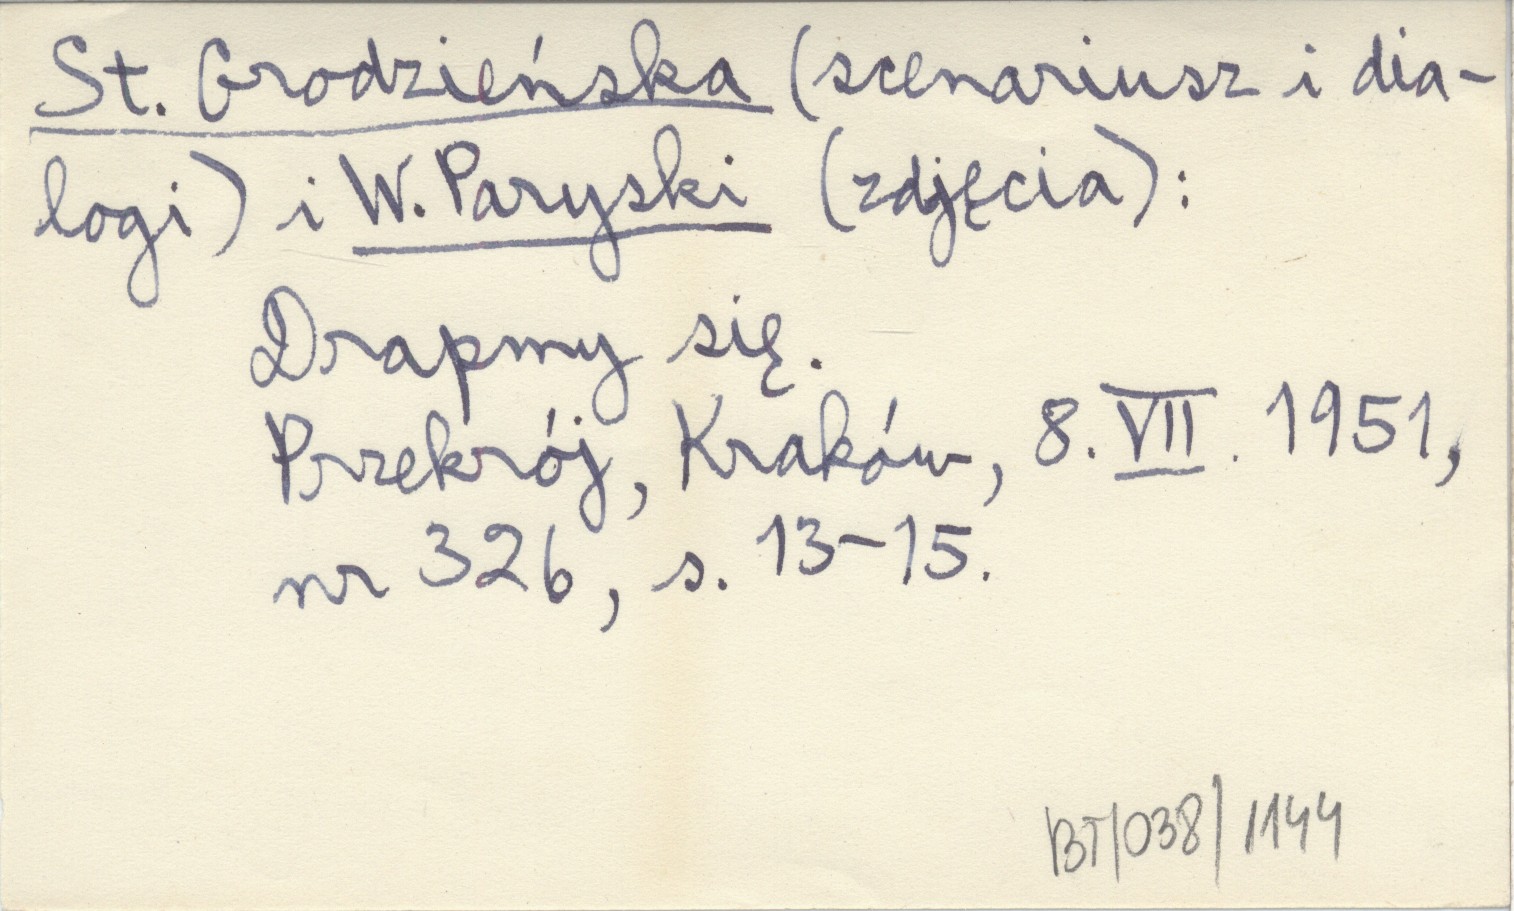 St. Grodzieńska (scenariusz i dia-
logi) i W. Paryski (zdjęcia):
Drapmy się.
Przekrój, Kraków, 8. VII. 1951,
nr 326, s. 13-15.
BT/038/1144